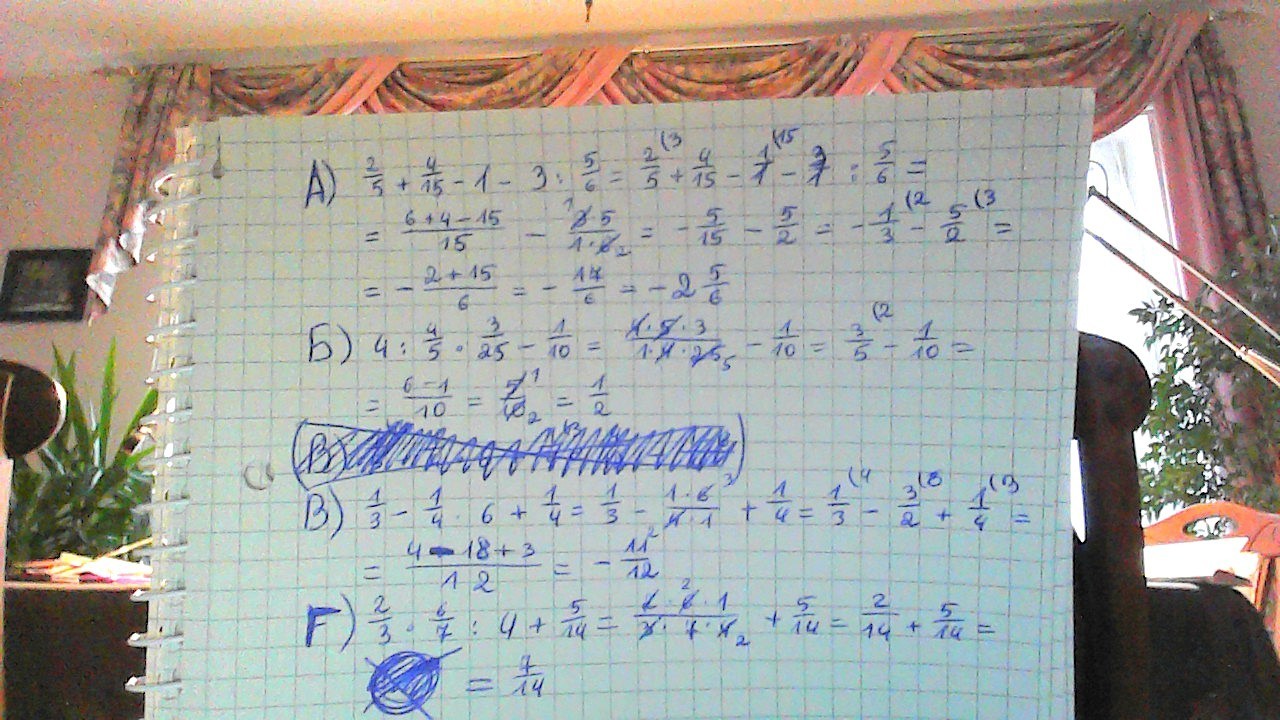 А) 2/5 + 4/15 - 1 - 3 : 5/6 = 2/5 (3 + 4/15 - 1/1 (15 - 3/1 : 5/6 =
= (6+4-15)/15 - (3·5)/(1·6) 1 2 = - 5/15 - 5/2 = - 1/3 (2 - 5/2 (3 =
= - (2+15)/6 = - 17/6 = - 2 5/6
Б) 4 : 4/5 · 3/25 - 1/10 = (4·5·3)/(1·4·25) 5 - 1/10 = 3/5 (2 - 1/10 =
= (6-1)/10 = 5/10 1 2 = 1/2
В) 1/3 - 1/4 · 6 + 1/4 = 1/3 - (1·6)/(4·1) 3 + 1/4 = 1/3 (4 - 3/2 (6 + 1/4 (3 =
= (4-18+3)/12 = - 11/12
Г) 2/3 · 6/7 : 4 + 5/14 = (2·6·1)/(3·7·4) 2 2 + 5/14 = 2/14 + 5/14 =
= 7/14